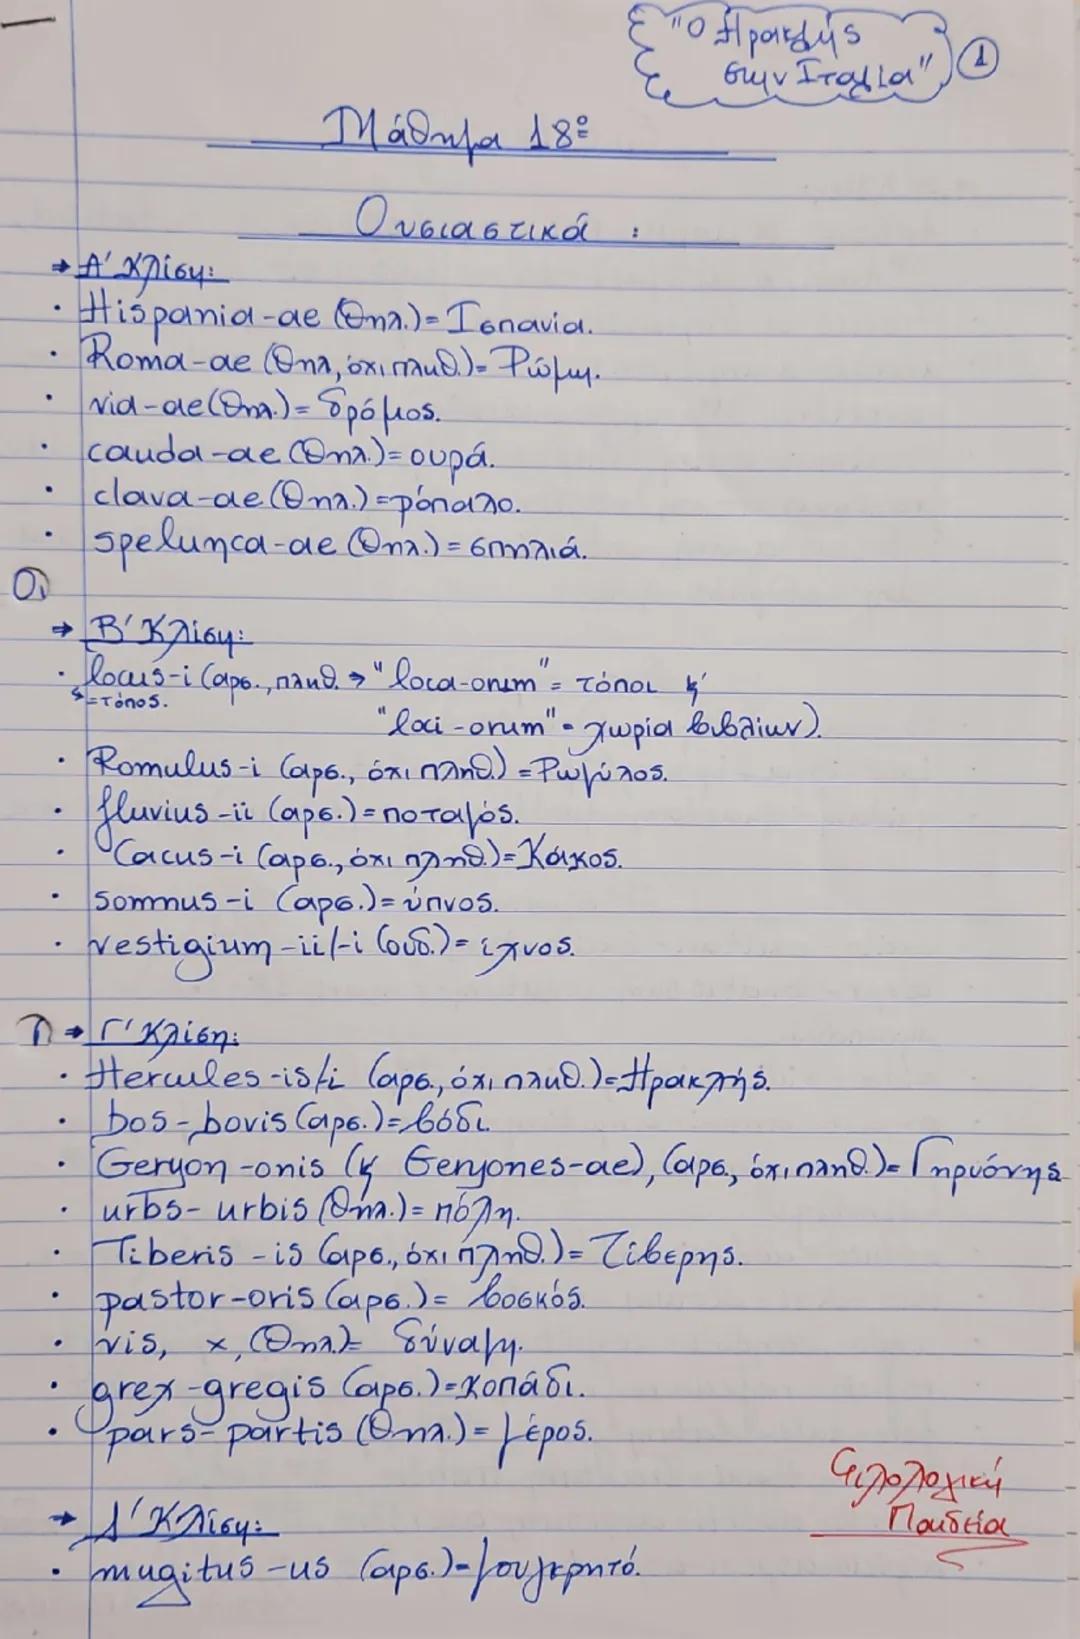 "Ο Ηρακλής
στην Ιταλία" 1
Μάθημα 18ο
Ουσιαστικά :
→ Α' Κλίση:
• Hispania-ae (θηλ.)= Ισπανία.
• Roma-ae (θηλ, όχι πληθ.)= Ρώμη.
• via-ae (θηλ.)= δρόμος.
• cauda-ae (θηλ.)= ουρά.
• clava-ae (θηλ.)=ρόπαλο.
• spelunca-ae (θηλ.)= σπηλιά.
→ Β' Κλίση:
• locus-i (αρσ., πληθ. → "loca-orum" = τόποι κ'
↳=τόπος.
"loci-orum" = χωρία βιβλίων).
• Romulus-i (αρσ., όχι πληθ.) = Ρωμύλος.
• fluvius-ii (αρσ.)= ποταμός.
• Cacus-i (αρσ., όχι πληθ.)= Κάκος.
• somnus-i (αρσ.)= ύπνος.
• vestigium-ii/-i (ουδ.)= ίχνος.
→ Γ' Κλίση:
• Hercules-is/i (αρσ., όχι πληθ.)=Ηρακλής.
• bos-bovis (αρσ.)= βόδι.
• Geryon-onis (κ Geryones-ae), (αρσ., όχι πληθ.)= Γηρυόνης
• urbs-urbis (θηλ.)= πόλη.
• Tiberis-is (αρσ., όχι πληθ.)= Τίβερης.
• pastor-oris (αρσ.)= βοσκός.
• vis, x, (θηλ.)= δύναμη.
• grex-gregis (αρσ.)=κοπάδι.
• pars-partis (θηλ.)= μέρος.
Φιλολογική
Παιδεία
→ Δ' Κλίση:
• mugitus-us (αρσ.)= μουγκρητό.